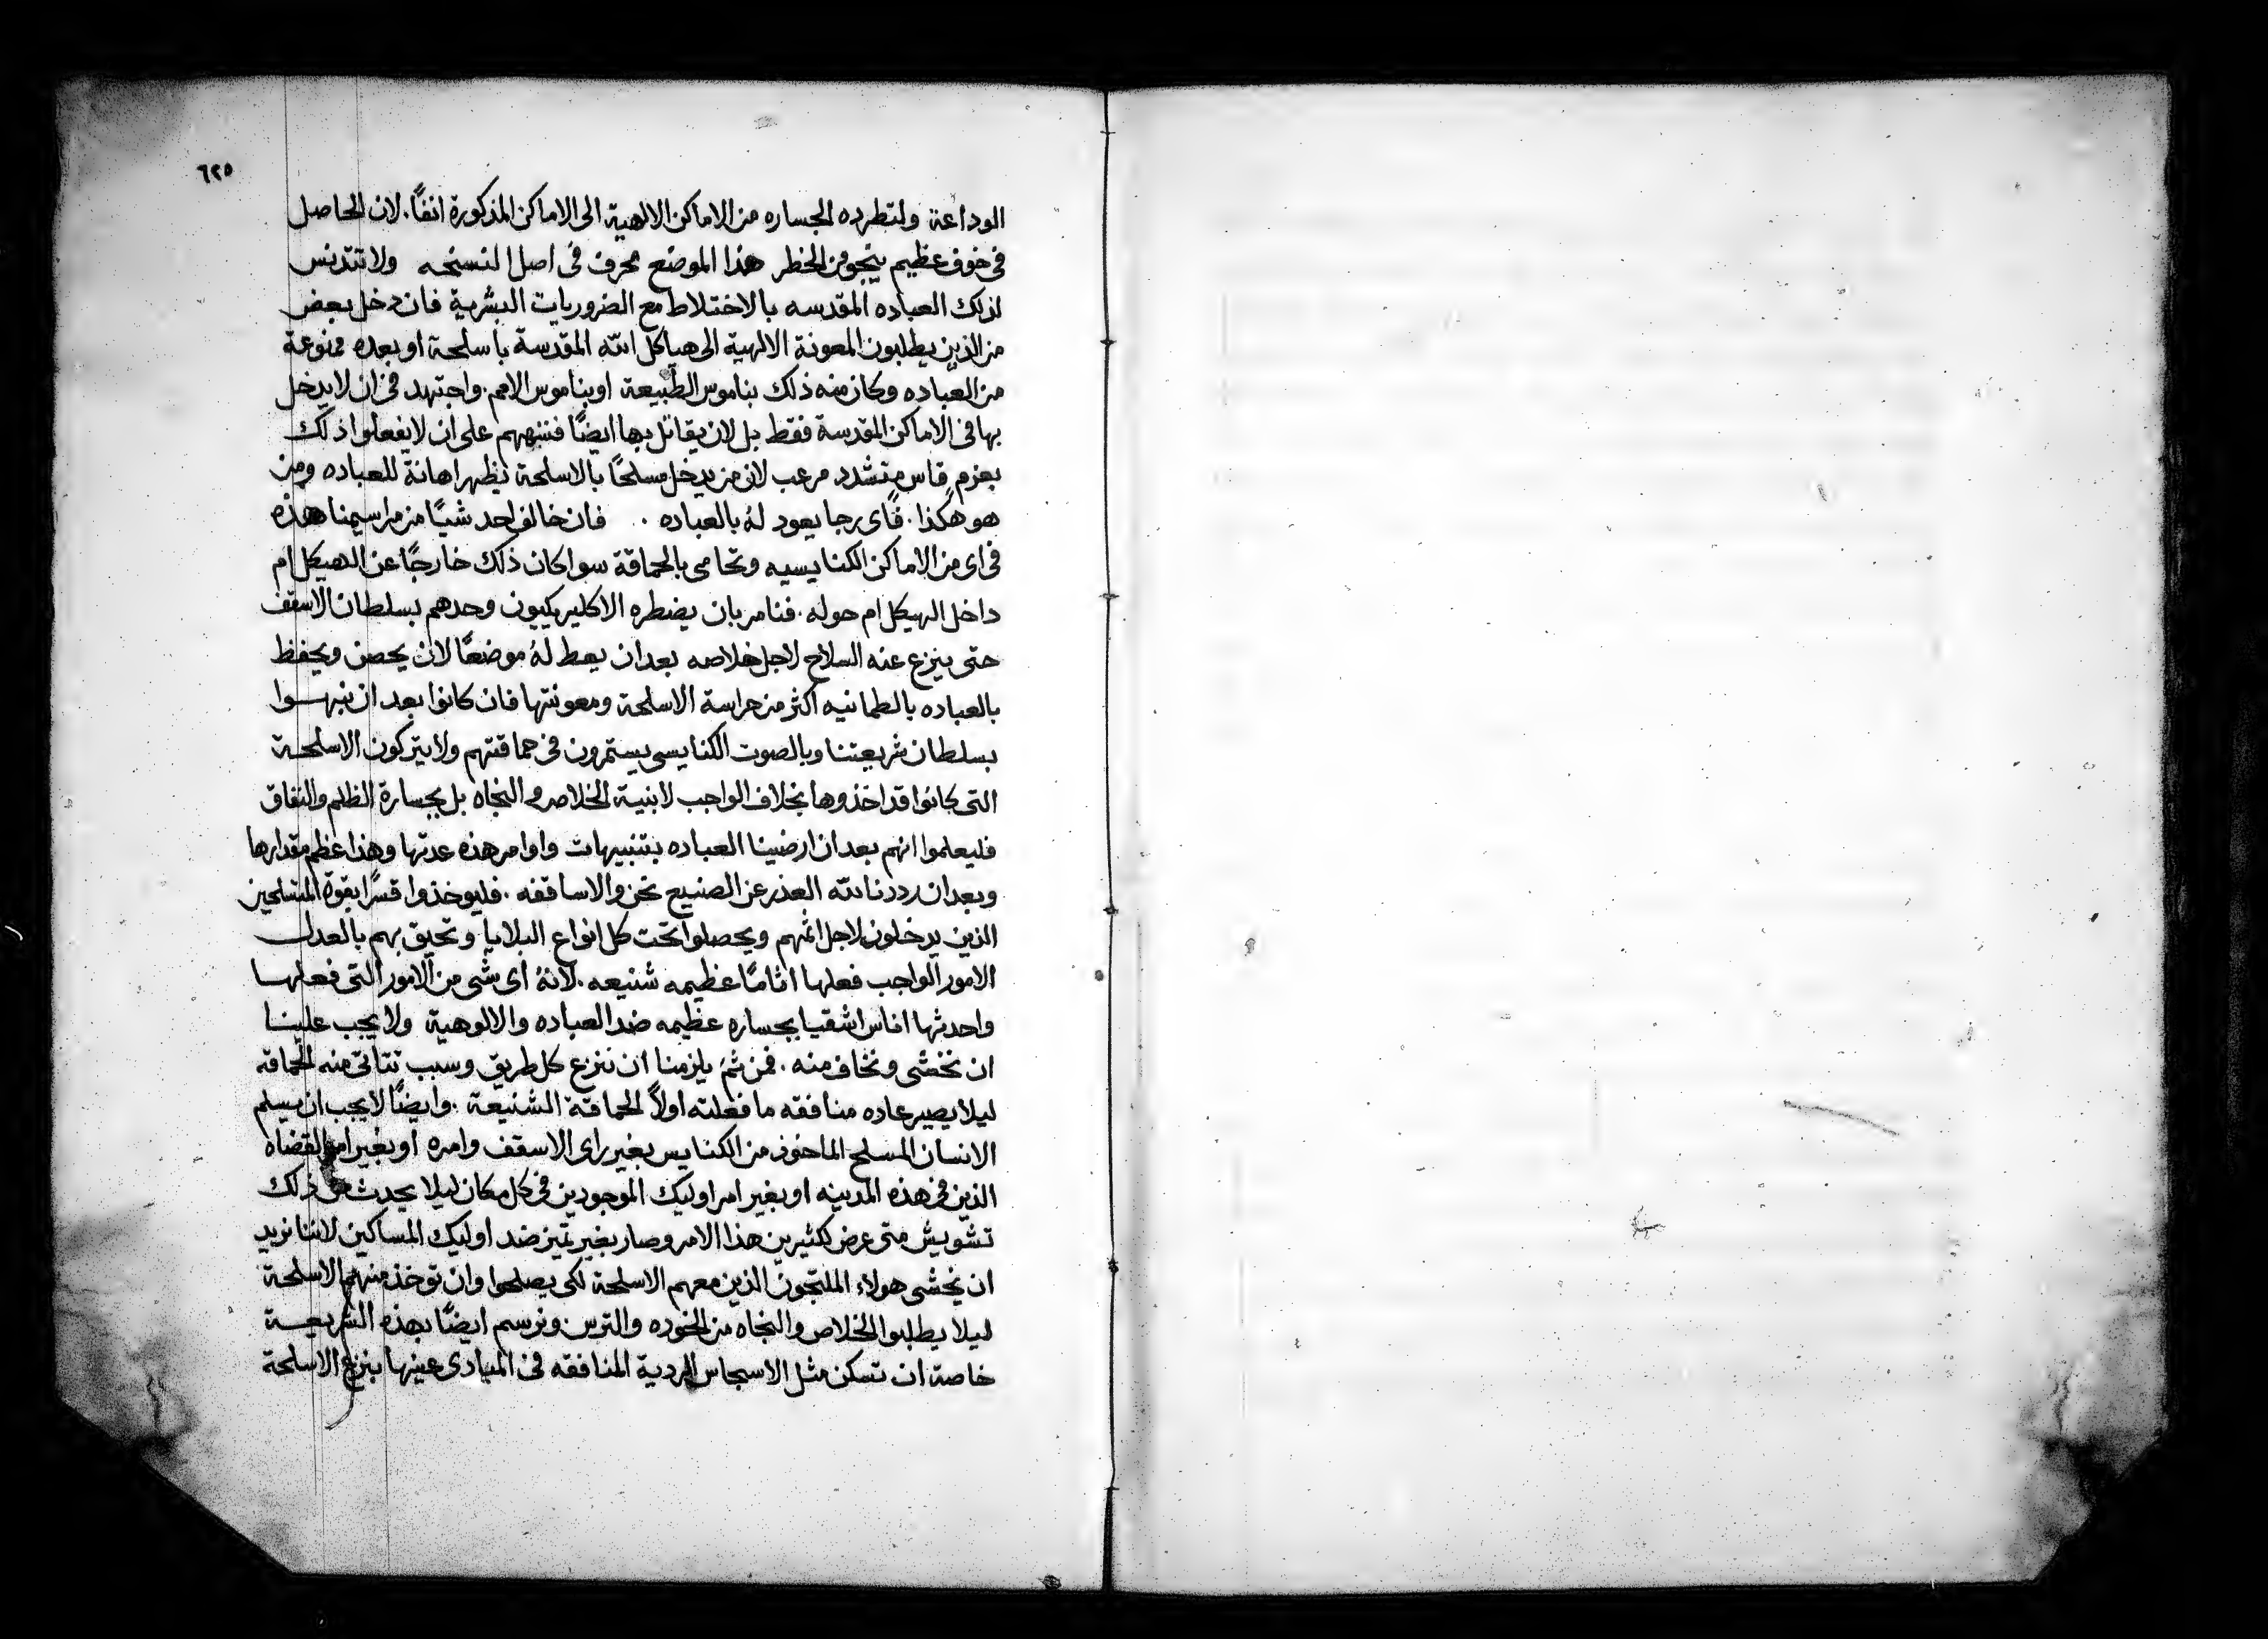 ٦٢٥
الوداعة ولتطرده الجساره من الاماكن الالهية الى الاماكن المذكورة انفًا. لان الحاصل
فى خوف عظيم ينجو من الخطر هذا الموضع محرف فى اصل النسخه ولا تتدنس
لذلك العباده المقدسه بالاختلاط مع الضروريات البشرية فان دخل بعض
من الذين يطلبون المعونة الالهية الى هياكل الله المقدسة باسلحة او بعده ممنوعة
من العباده وكان منه ذلك بناموس الطبيعة او بناموس الامم. واجتهد فى ان لا يدخل
بها فى الاماكن المقدسة فقط بل لان يقاتل بها ايضًا فننبههم على ان لا يفعلوا ذلك
بعزم قاس متشدد مرعب لان من يدخل مسلحًا بالاسلحة يظهر اهانة للعباده ومن
هو هكذا. فاى رجا يعود لهُ بالعباده . فان خالف احد شيًا من مراسيمنا هذه
فى اى من الاماكن الكنايسيه وتحامى بالحماقة سوا كان ذلك خارجًا عن الهيكل ام
داخل الهيكل ام حوله. فنامر بان يضطره الاكليريكيون وحدهم بسلطان الاسقف
حتى ينزع عنه السلاح لاجل خلاصه بعد ان يعط لهُ موضعًا لان يحصن ويحفظ
بالعباده بالطمانيه اكثر من حراسة الاسلحة ومعونتها فان كانوا بعد ان نبهوا
بسلطان شريعتنا وبالصوت الكنايسى يستمرون فى حماقتهم ولا يتركون الاسلحة
التى كانوا قد اخذوها بخلاف الواجب لا بنية الخلاص والنجاه بل بجسارة الظلم والنفاق
فليعلموا انهم بعد ان ارضينا العباده بتنبيهات واوامر هذه عدتها وهذا عظم مقدارها
وبعد ان رددنا لله العذر عن الصنيع نحن والاساقفه. فليوخذوا قسرًا بقوة المتسلحين
الذين يدخلون لاجل اثمهم ويحصلوا تحت كل انواع البلايا وتحيق بهم بالعدل
الامور الواجب فعلها اثامًا عظيمه شنيعه. لانهُ اى شى من الامور التى فعلها
واحدثها اناس اشقيا بجساره عظيمه ضد العباده والالوهية ولا يجب علينا
ان نخشى ونخاف منه. فمن ثم يلزمنا ان ننزع كل طريق وسبب تتاتى منه الحماقه
ليلا يصير عاده منافقه ما فعلته اولاً الحماقة الشنيعة. وايضًا لا يجب ان يسلم
الانسان المسلح الماخوذ من الكنايس بغير راى الاسقف وامره او بغير امر القضاه
الذين فى هذه المدينه او بغير امر اوليك الموجودين فى كل مكان ليلا يحدث من ذلك
تشويش متى عرض لكثيرين هذا الامر وصار بغير تميز ضد اوليك المساكين لاننا نريد
ان يخشى هولاء الملتجون الذين معهم الاسلحة لكى يصلحوا وان توخذ منهم الاسلحة
ليلا يطلبوا الخلاص والنجاه من الخوده والترس ونرسم ايضًا بهذه الشريعة
خاصة ان تسكن مثل الاسجاس الردية المنافقه فى المبادى عينها بنزع الاسلحة